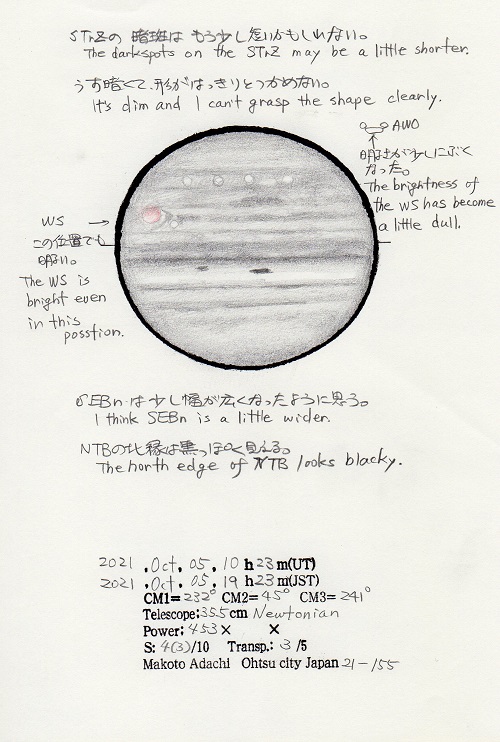 STrZの 暗斑は もう少し短いかもしれない。
The dark spots on the STrZ may be a little shorter.
うす暗くて、形がはっきりとつかめない。
It's dim and I can't grasp the shape clearly.
AWO
明るさが少しにぶく
なった。
The brightness of
the WS has become
a little dull.
WS →
この位置でも
明い。
The WS is
bright even
in this
posstion.
SEBnは少し幅が広くなったように思う。
I think SEBn is a little wider.
NTBの北縁は黒っぽく見える。
The north edge of NTB looks blacky.
2021 . Oct. 05 . 10 h 23 m(UT)
2021 . Oct. 05 . 19 h 23 m(JST)
CM1= 232° CM2= 45° CM3= 241°
Telescope: 35.5 cm Newtonian
Power: 453 × ×
S: 4(3)/10 Transp.: 3 /5
Makoto Adachi Ohtsu city Japan 21-155